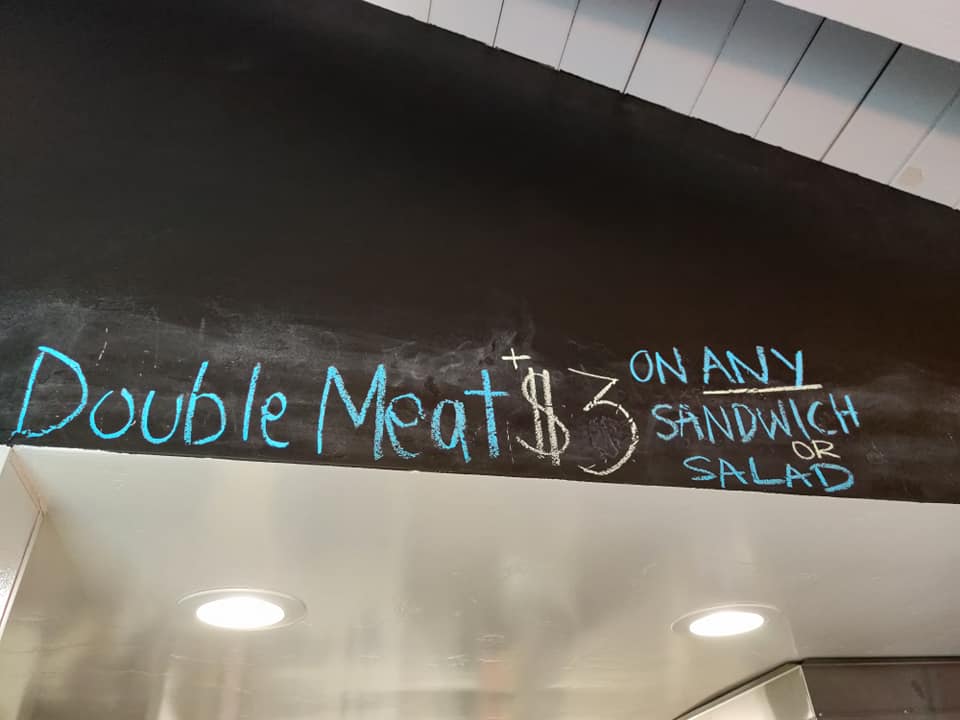 Double Meat +$3
ON ANY
SANDWICH
OR
SALAD